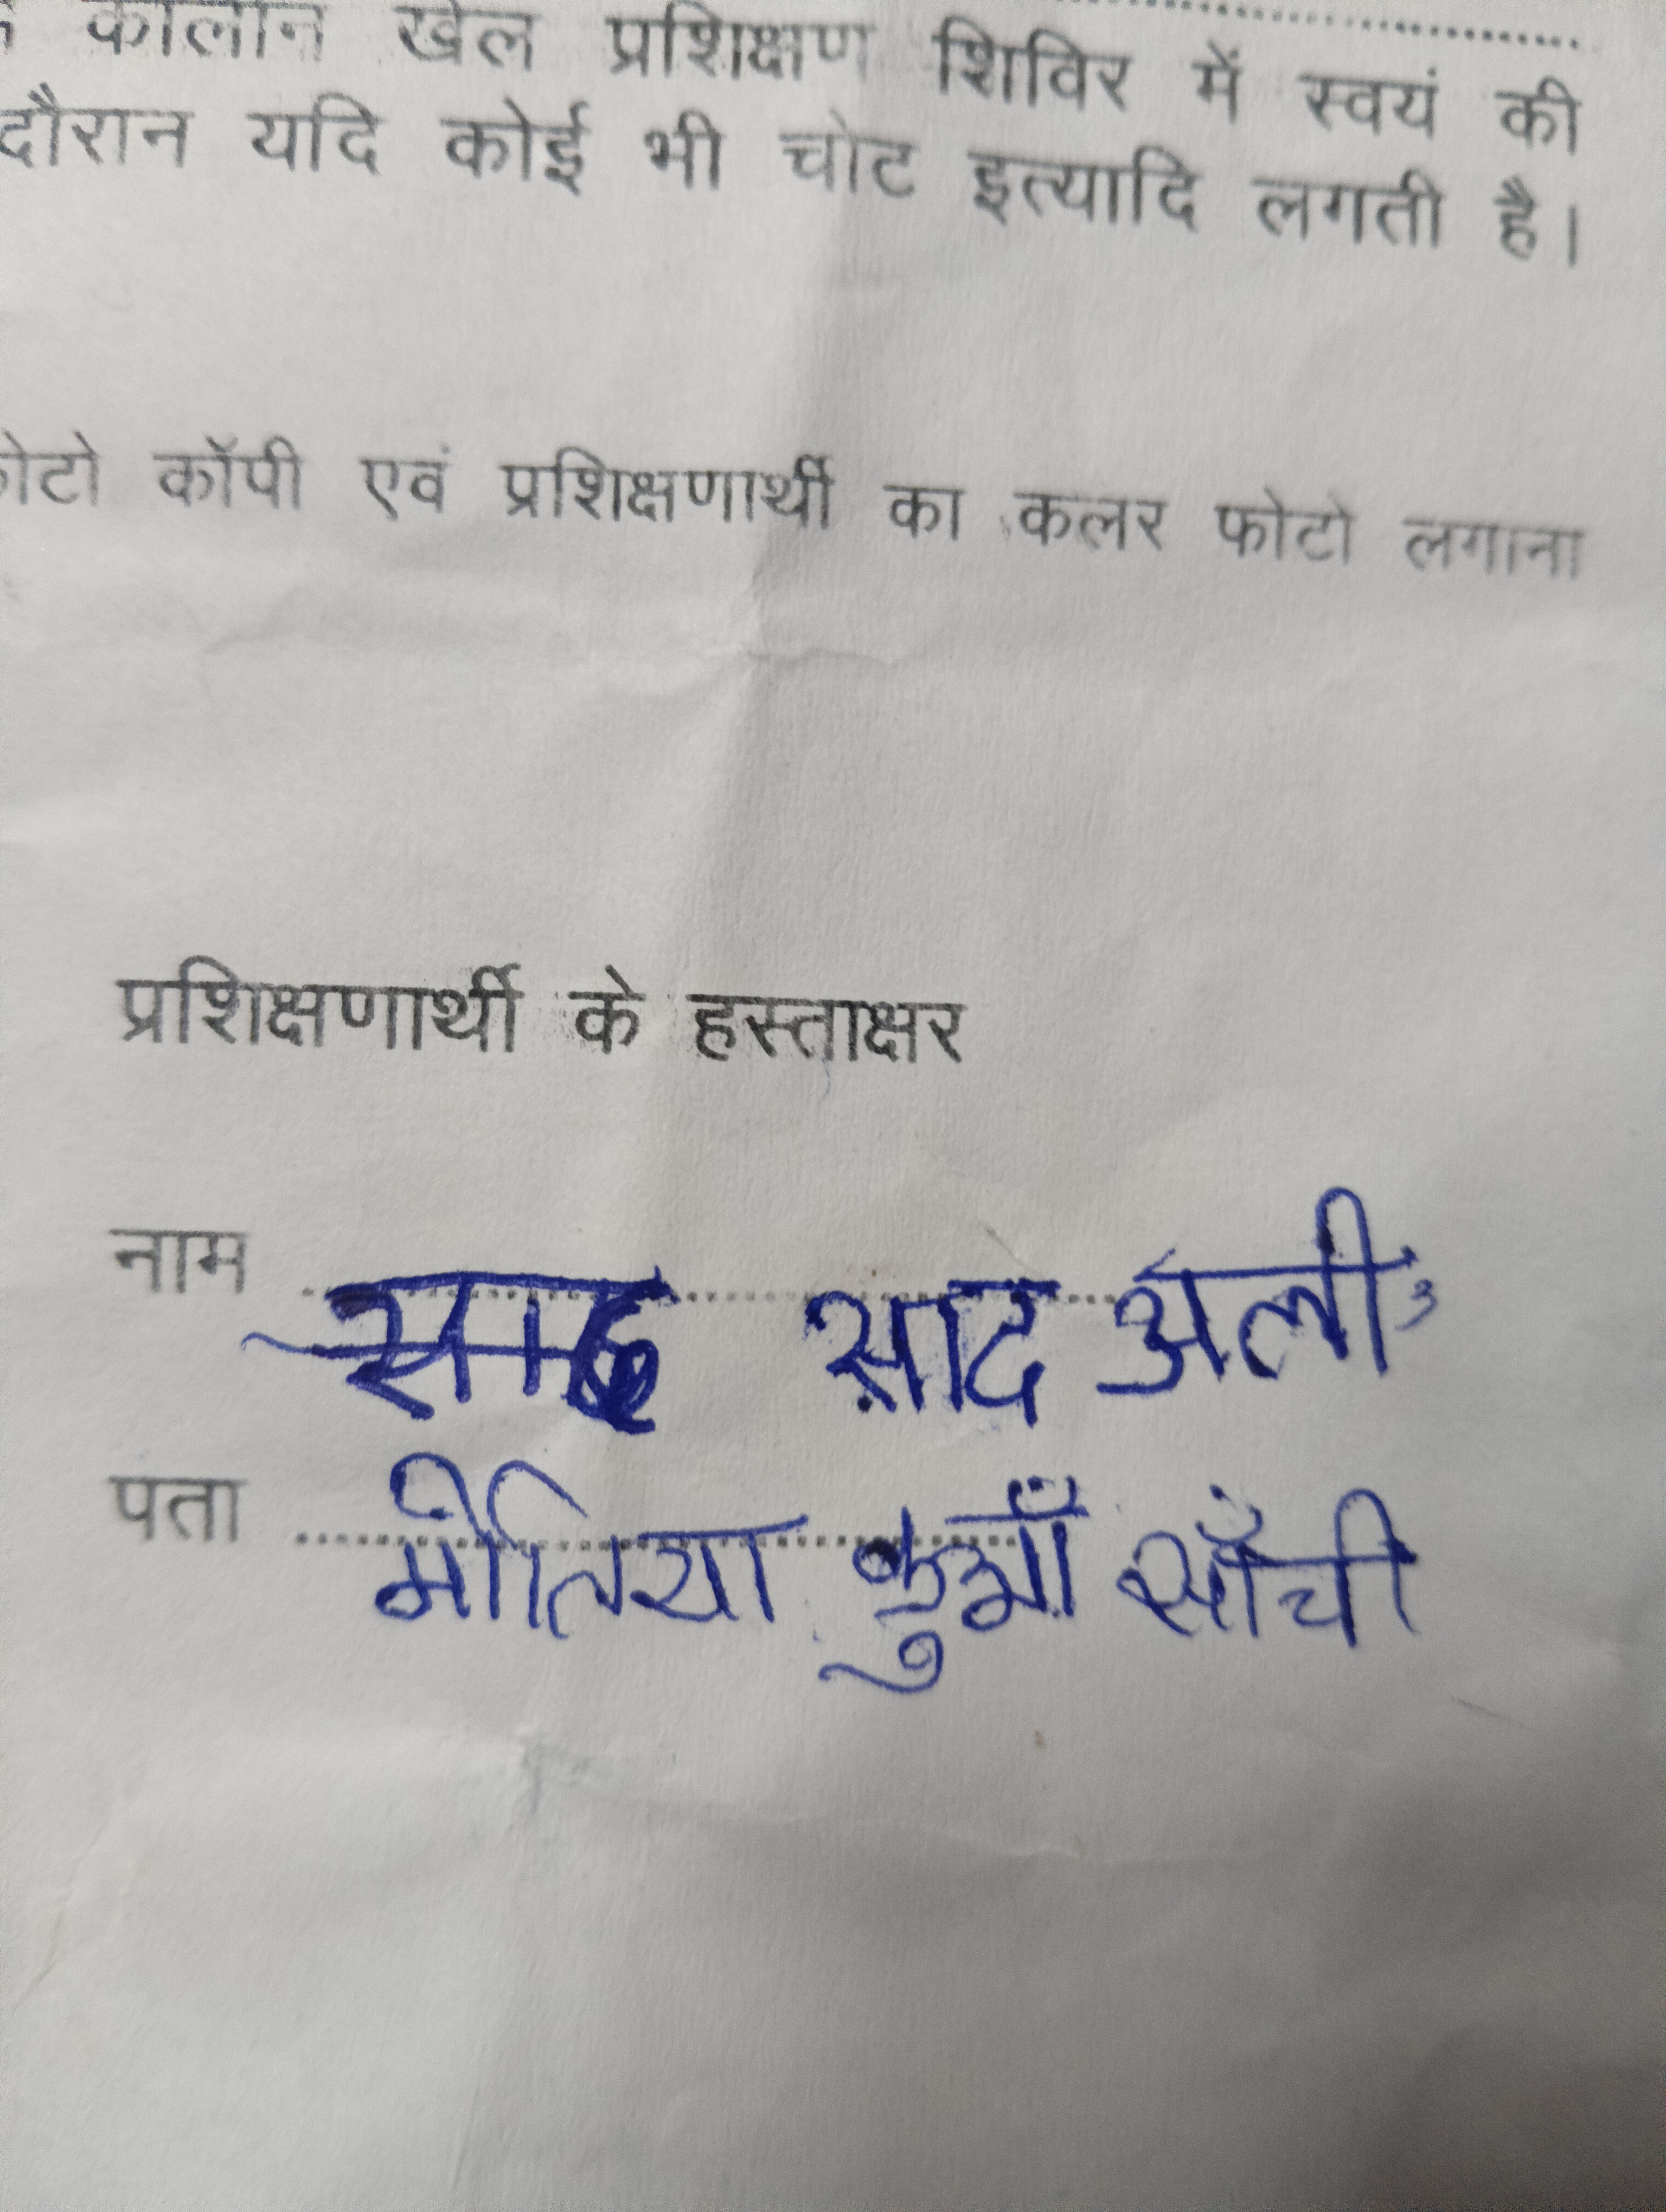 कालीन खेल प्रशिक्षण शिविर में स्वयं की
दौरान यदि कोई भी चोट इत्यादि लगती है।
कॉपी एवं प्रशिक्षणार्थी का कलर फोटो लगाना
प्रशिक्षणार्थी के हस्ताक्षर
नाम साद अली
पता मोतिया कुआँ साँची